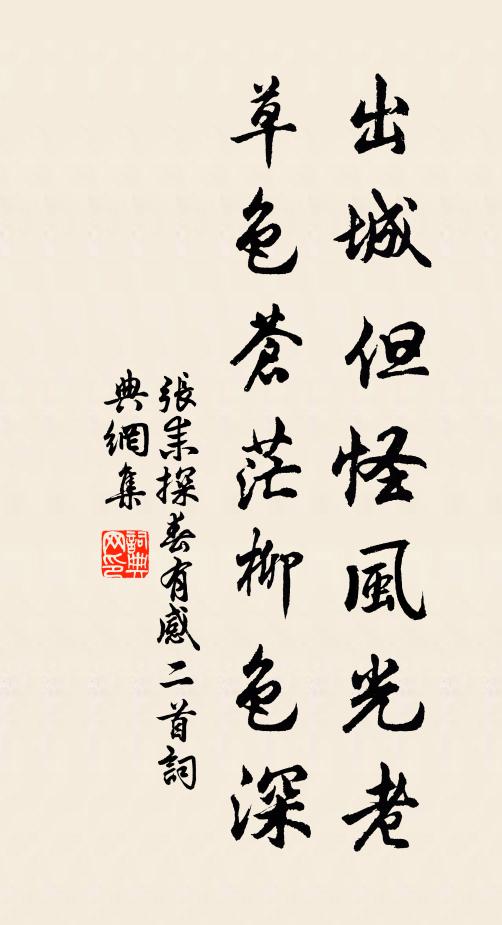 出城但怪風光老
草色蒼茫柳色深
張耒探春有感二首詞
典網集
詞典网印